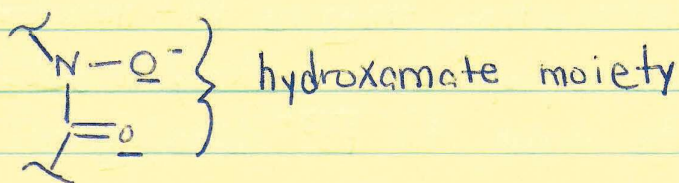 N — O⁻ } hydroxamate moiety
O